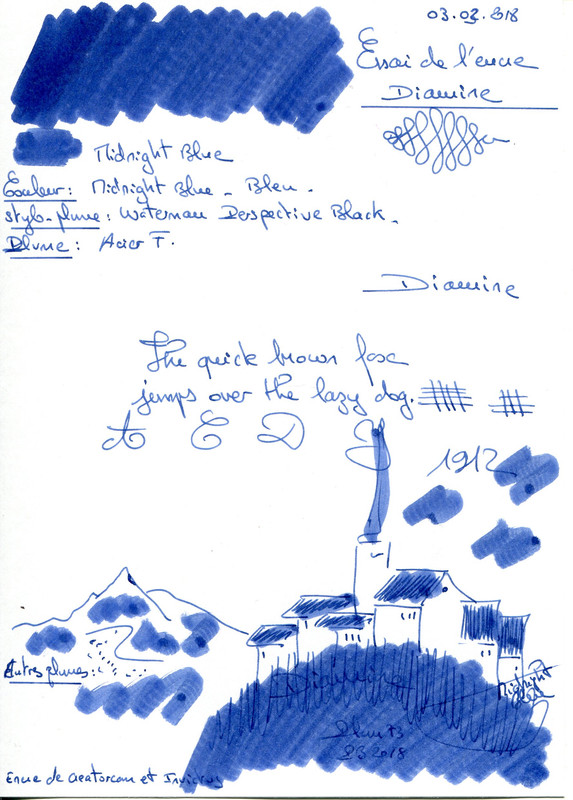 03.02.2018
Essai de l'encre
Diamine
Midnight Blue
Couleur: Midnight Blue - Bleu.
Stylo-plume: Waterman Perspective Black.
Plume: Acier F.
Diamine
The quick brown fox
jumps over the lazy dog.
A E D
1912
Autres plumes:
Diamine
Midnight
Blue
2018
Encre de
et